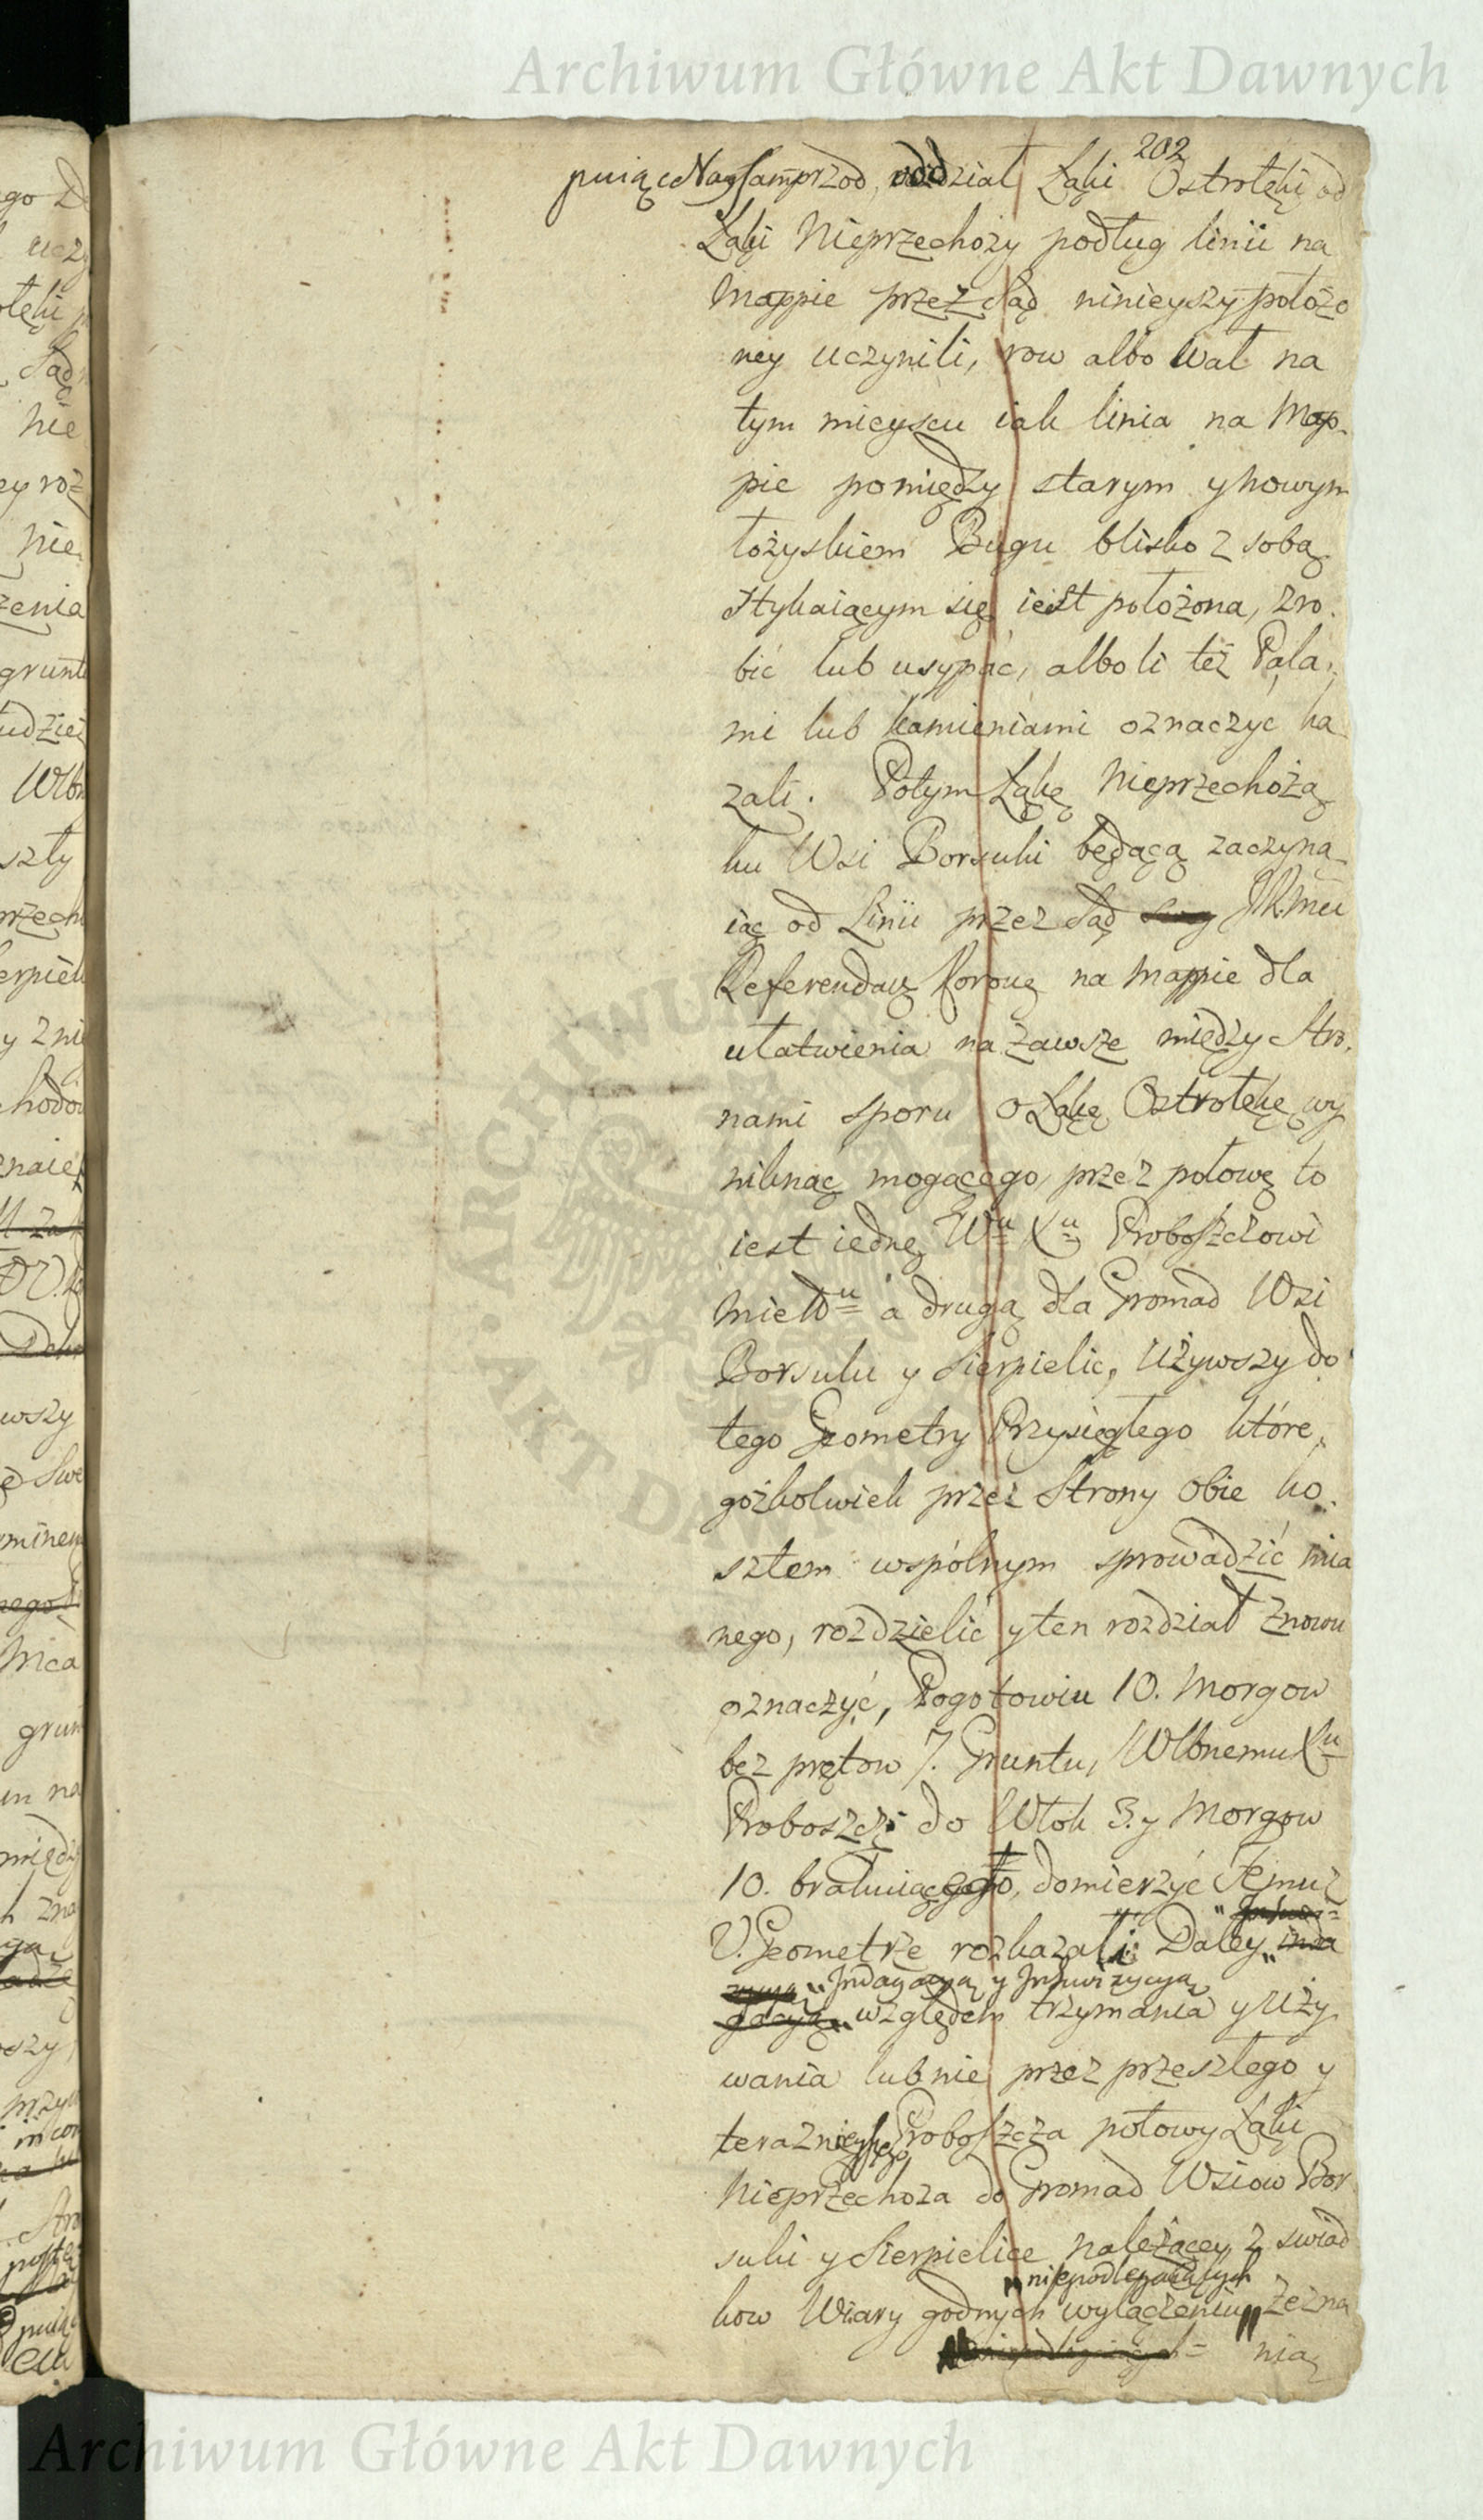 Archiwum Główne Akt Dawnych
202
puiące Naysamprzod, oddział Łąki Ostrołęki od
Łąki Nieprzechoży podług linii na
Mappie przez Sąd ninieyszy położo
ney uczynili, row albo wał na
tym mieyscu iak linia na Map-
pie pomiędzy starym y nowym
łożyskiem Bugu blisko z sobą
stykaiącym się iest położona, zro
bić lub usypać, albo li też Pala-
mi lub kamieniami oznaczyć ka
zali. Potym Łąkę Nieprzechożą
ku Wsi Borsuki będącą zaczyna
iąc od Linii przez Sąd JKMci
Referendarz Koronę na Mappie dla
ułatwienia na zawsze między Stro-
nami sporu o Łąkę Ostrołękę wy
niknąć mogącego, przez połowę to
iest iednę Wmu Xu Proboszczowi
Mieldu a drugą dla Gromad Wsi
Borsuki y Sierpielic, Użyszy do
tego Geometry Przysięgłego które-
gożkolwiek przez Strony obie ko-
sztem wspólnym sprowadzić mia
nego, rozdzielić y ten rozdział znowu
oznaczyć, Pogotowiu 10. Morgow
bez prętow 7. Gruntu, Wlbnemu Xu
Proboszcz: do Włok 3. y Morgow
10. brakuiącego, domierzyć Temuż
U. Geometrze rozkazali. Daley
Indagacyą y Inkwizycyą
względem trzymania y Uży
wania lub nie przez przeszłego y
teraznieyszego Proboszcza połowy Łąki
Nieprzechoża do Gromad Wsiow Bor
suki y Sierpielice należącey z swiad
niepodlegaiących
kow Wiary godnych wyłączeniu zezna
nia
ARCHIWUM GŁÓWNE AKT DAWNYCH
Archiwum Główne Akt Dawnych